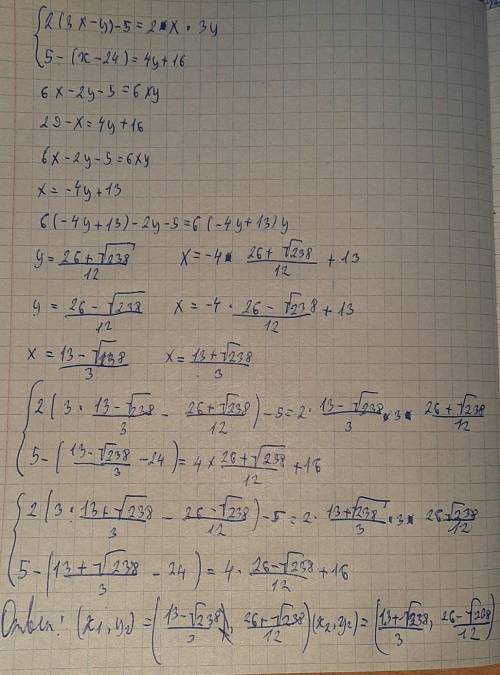 2(3x-y)-5=2·x·3y
5-(x-24)=4y+16
6x-2y-5=6xy
29-x=4y+16
6x-2y-5=6xy
x=-4y+13
6(-4y+13)-2y-5=6(-4y+13)y
y=(26+√238)/12 x=-4·(26+√238)/12+13
y=(26-√238)/12 x=-4·(26-√238)/12+13
x=(13-√238)/3 x=(13+√238)/3
2(3·(13-√238)/3-(26+√238)/12)-5=2·(13-√238)/3·3·(26+√238)/12
5-((13-√238)/3-24)=4×(26+√238)/12+16
2(3·(13+√238)/3-(26-√238)/12)-5=2·(13+√238)/3·3·(26-√238)/12
5-((13+√238)/3-24)=4·(26-√238)/12+16
Ответ: (x₁,y₁)=((13-√238)/3, (26+√238)/12) (x₂,y₂)=((13+√238)/3, (26-√238)/12)